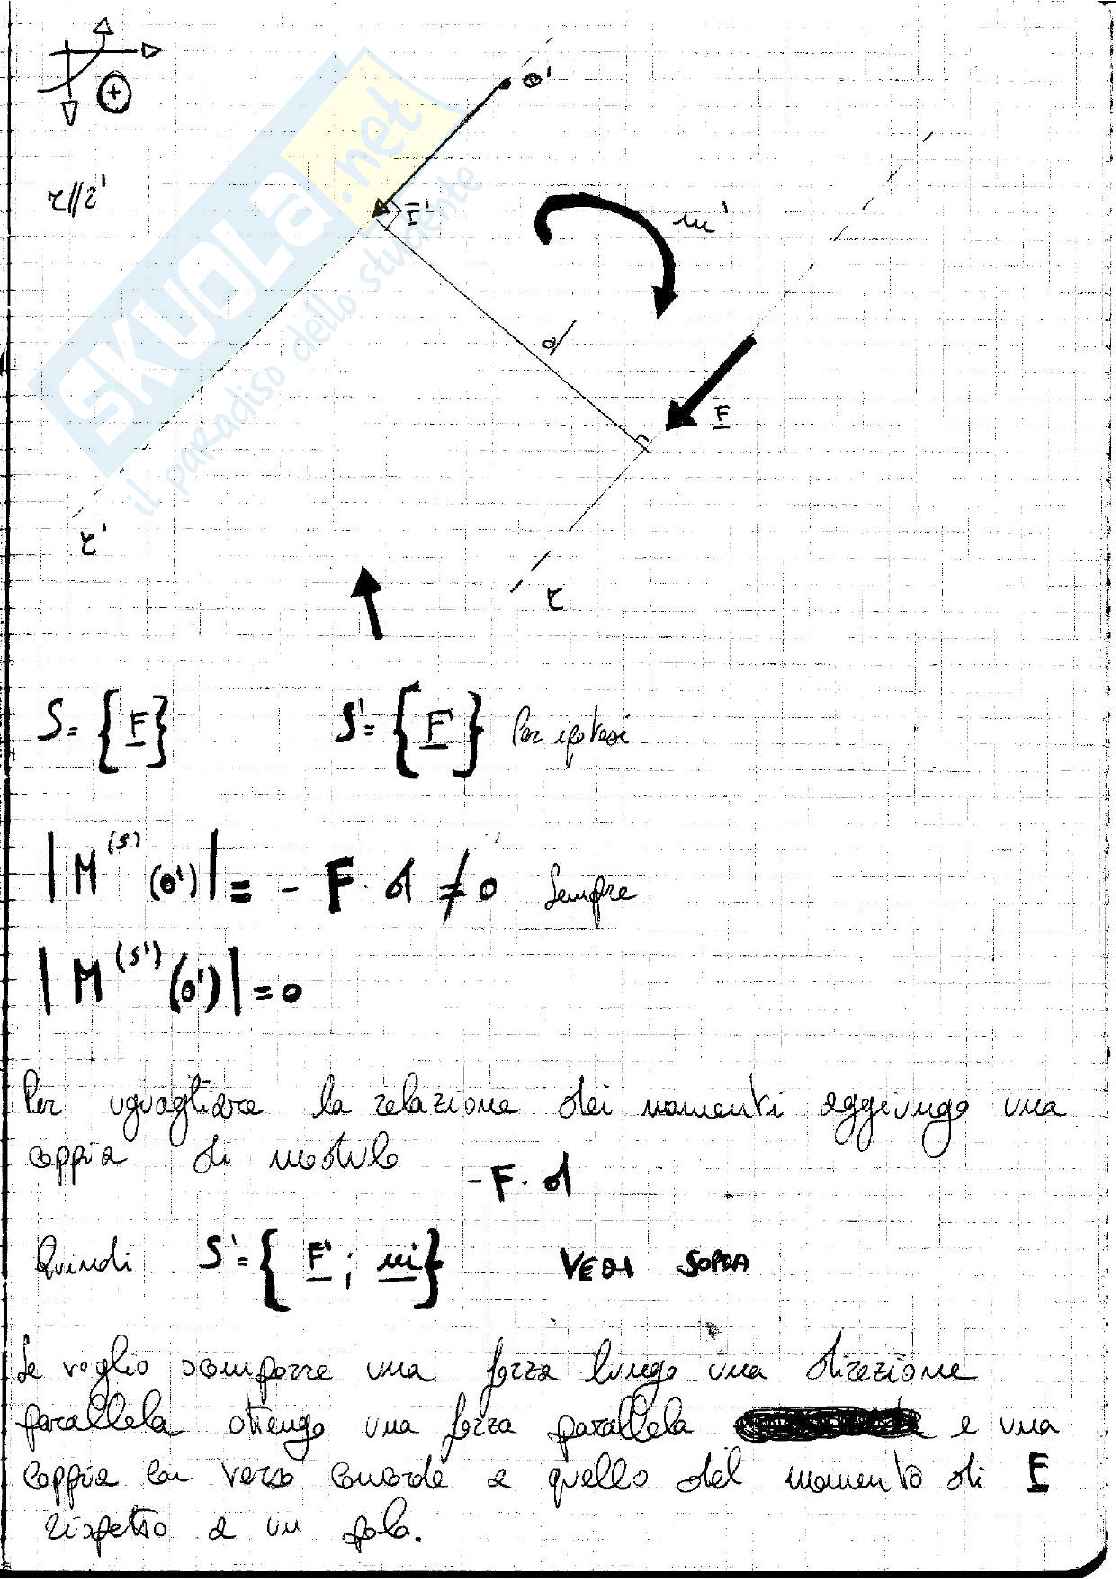 O'
r//r'
F'
m'
d
F
r'
r
S = { F }    S' = { F' } Per ipotesi
| M^(S) (O') | = - F · d ≠ 0 Sempre
| M^(S') (O') | = 0
Per uguagliare la relazione dei momenti aggiungo una
coppia di modulo
- F · d
Quindi S' = { F' ; m' } VEDI SOPRA
Se voglio scomporre una forza lungo una direzione
parallela ottengo una forza parallela e una
coppia con verso concorde a quello del momento di F
rispetto a un polo.
SKUOLA.net
il paradiso dello studente